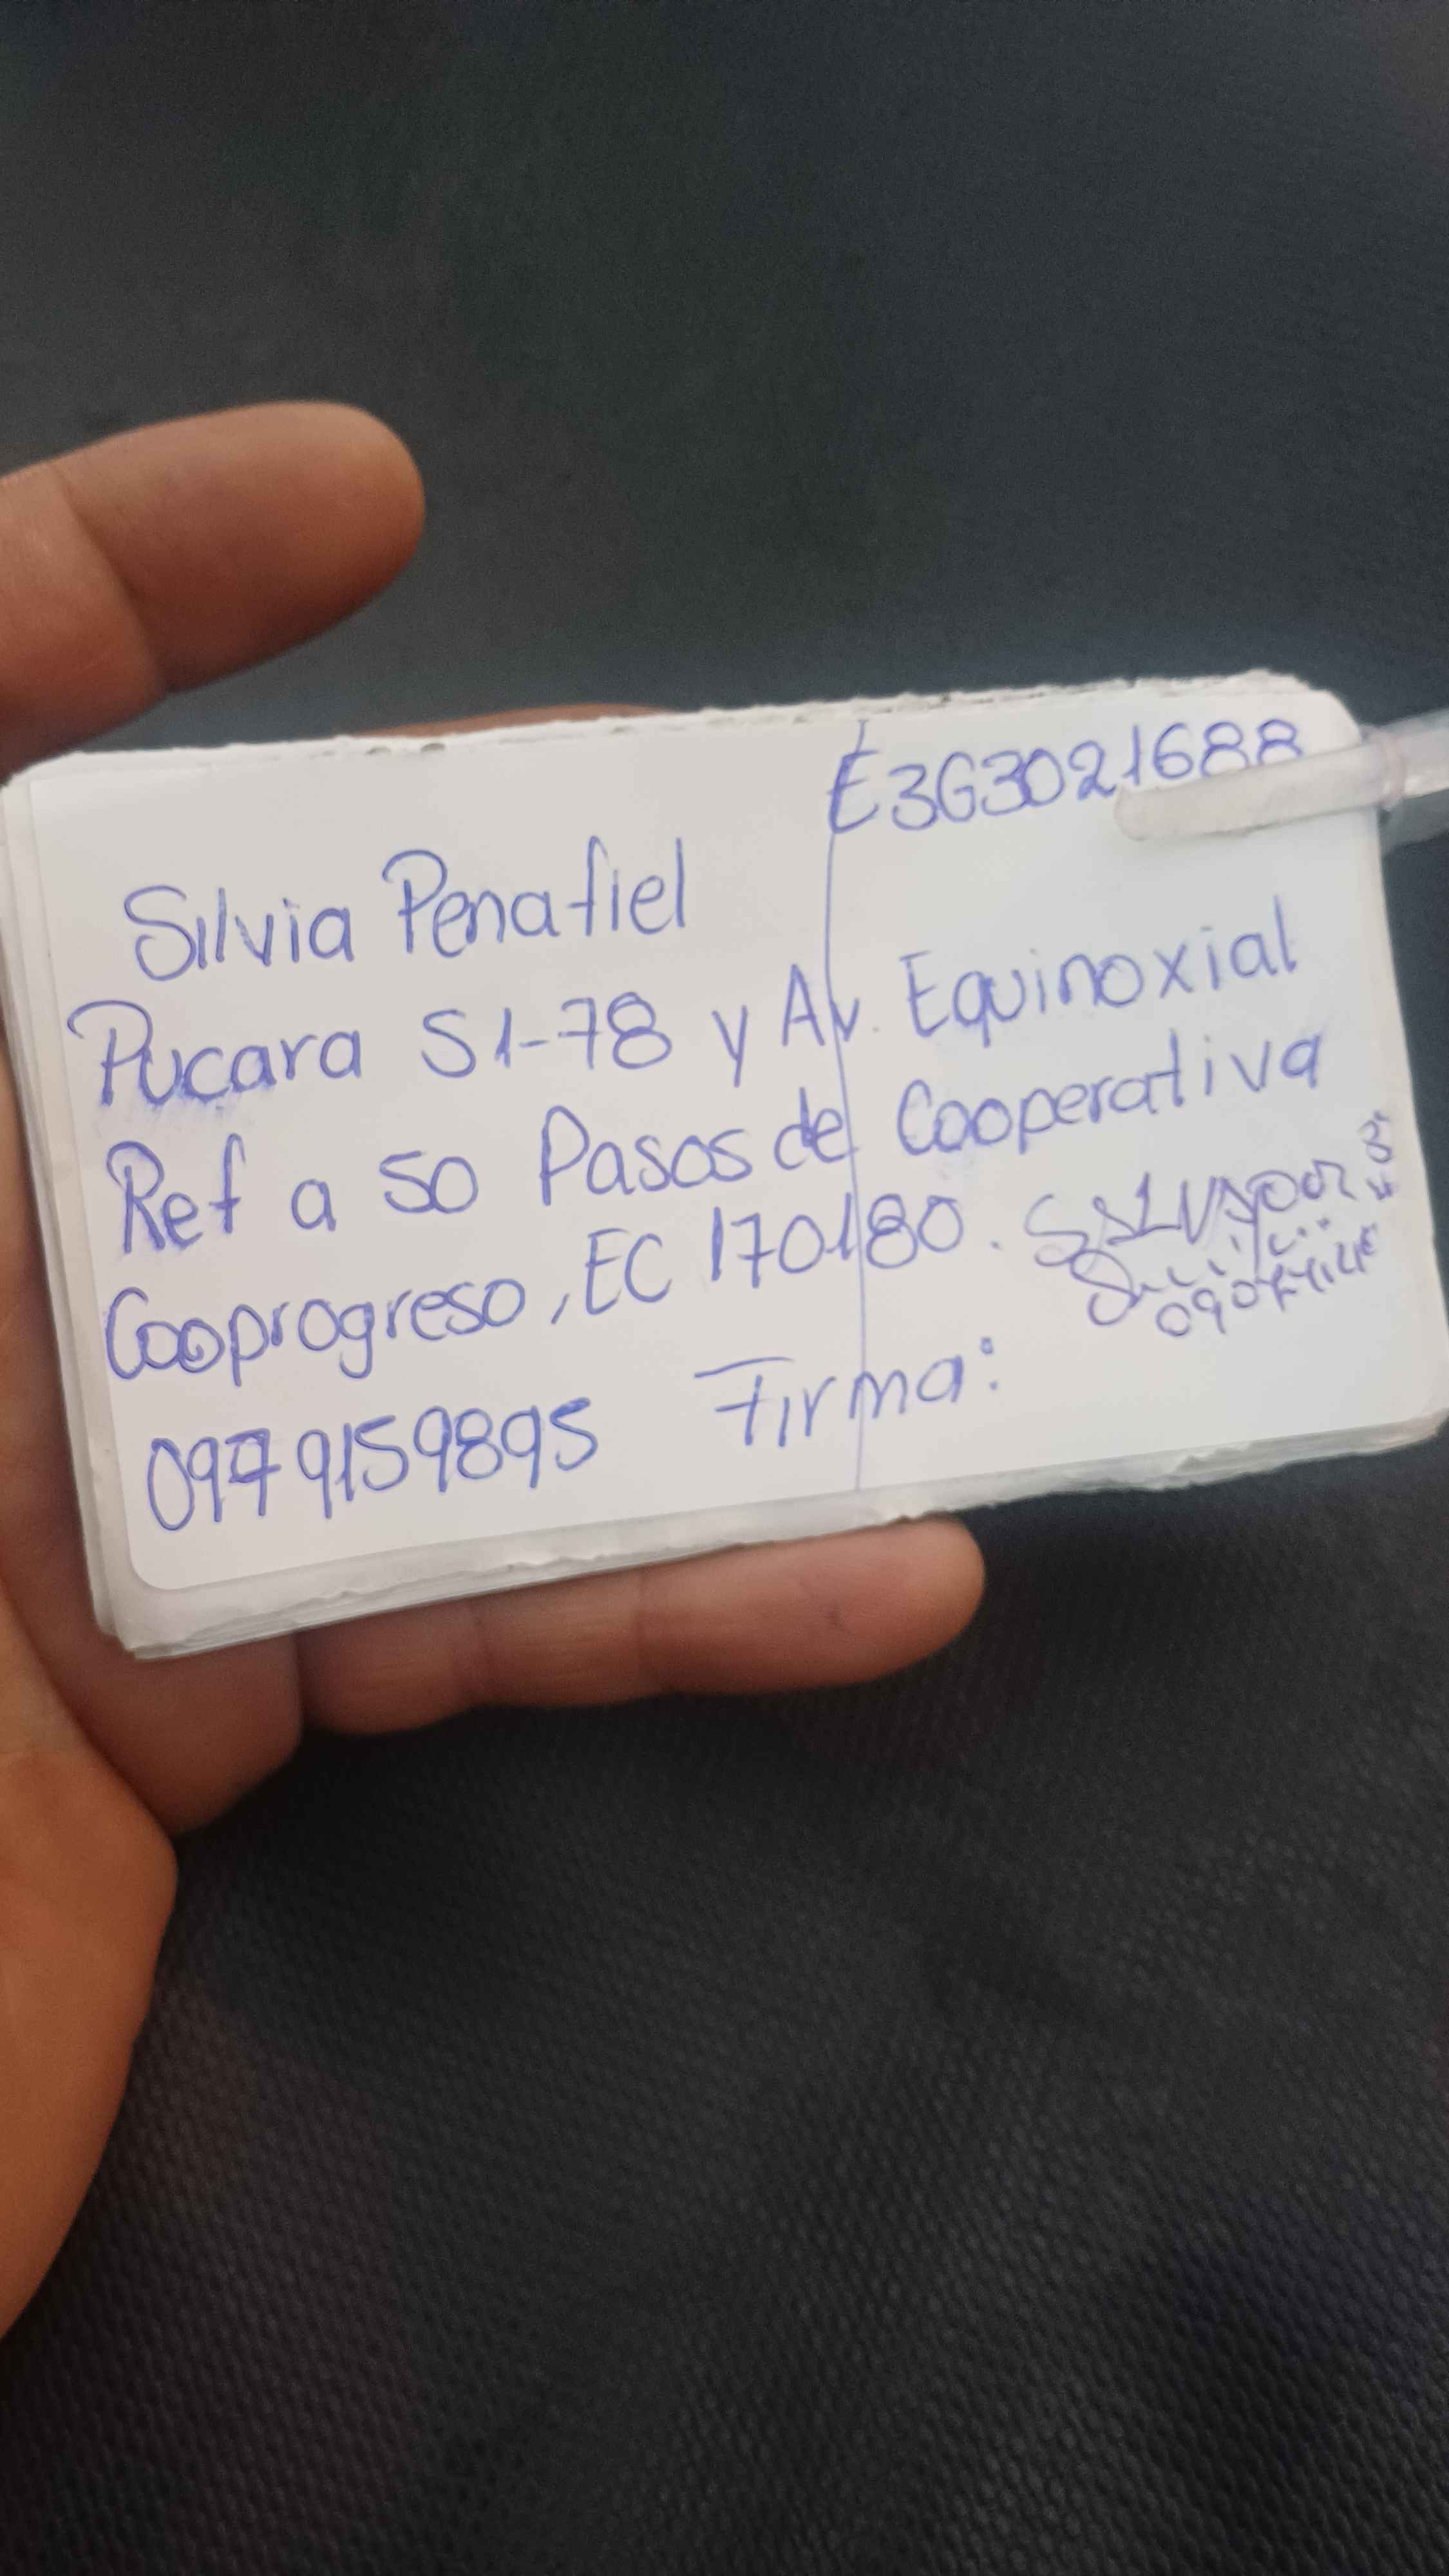 E3G3021688
Silvia Penafiel
Pucara S1-78 y Av. Equinoxial
Ref a 50 Pasos de Cooperativa
Cooprogreso, EC 170180.
0979159895 Firma: